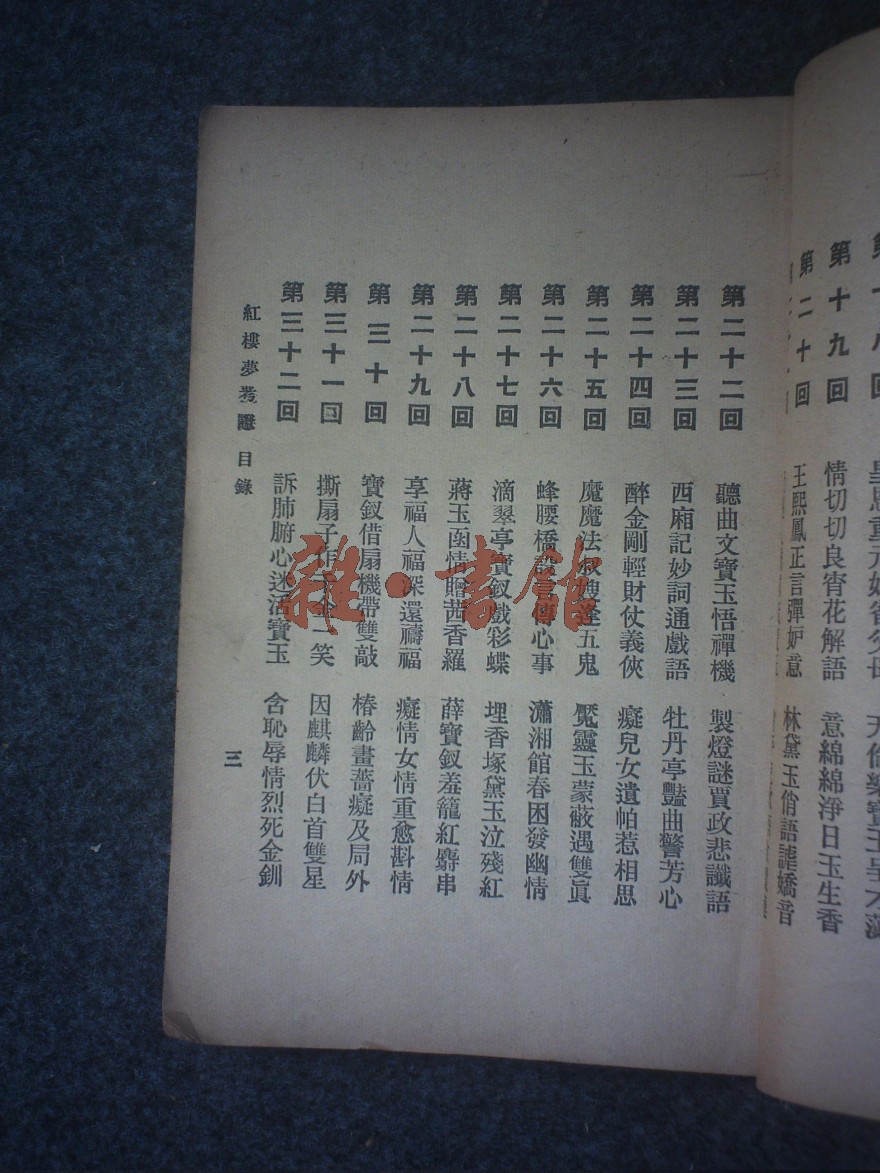 第十九回 情切切良宵花解語 意綿綿淨日玉生香
第二十回 王熙鳳正言彈妒意 林黛玉俏語謔嬌音
第二十二回 聽曲文寶玉悟禪機 製燈謎賈政悲讖語
第二十三回 西廂記妙詞通戲語 牡丹亭豔曲警芳心
第二十四回 醉金剛輕財仗義俠 癡兒女遺帕惹相思
第二十五回 魘魔法叔嫂逢五鬼 魘靈玉蒙蔽遇雙眞
第二十六回 蜂腰橋設言傳心事 瀟湘館春困發幽情
第二十七回 滴翠亭寶釵戲彩蝶 埋香塚黛玉泣殘紅
第二十八回 蔣玉函情贈茜香羅 薛寶釵羞籠紅麝串
第二十九回 享福人福深還禱福 癡情女情重愈斟情
第三十回 寶釵借扇機帶雙敲 椿齡畫薔癡及局外
第三十一回 撕扇子作千金一笑 因麒麟伏白首雙星
第三十二回 訴肺腑心迷活寶玉 含恥辱情烈死金釧
紅樓夢考證 目錄 三
雜·書館